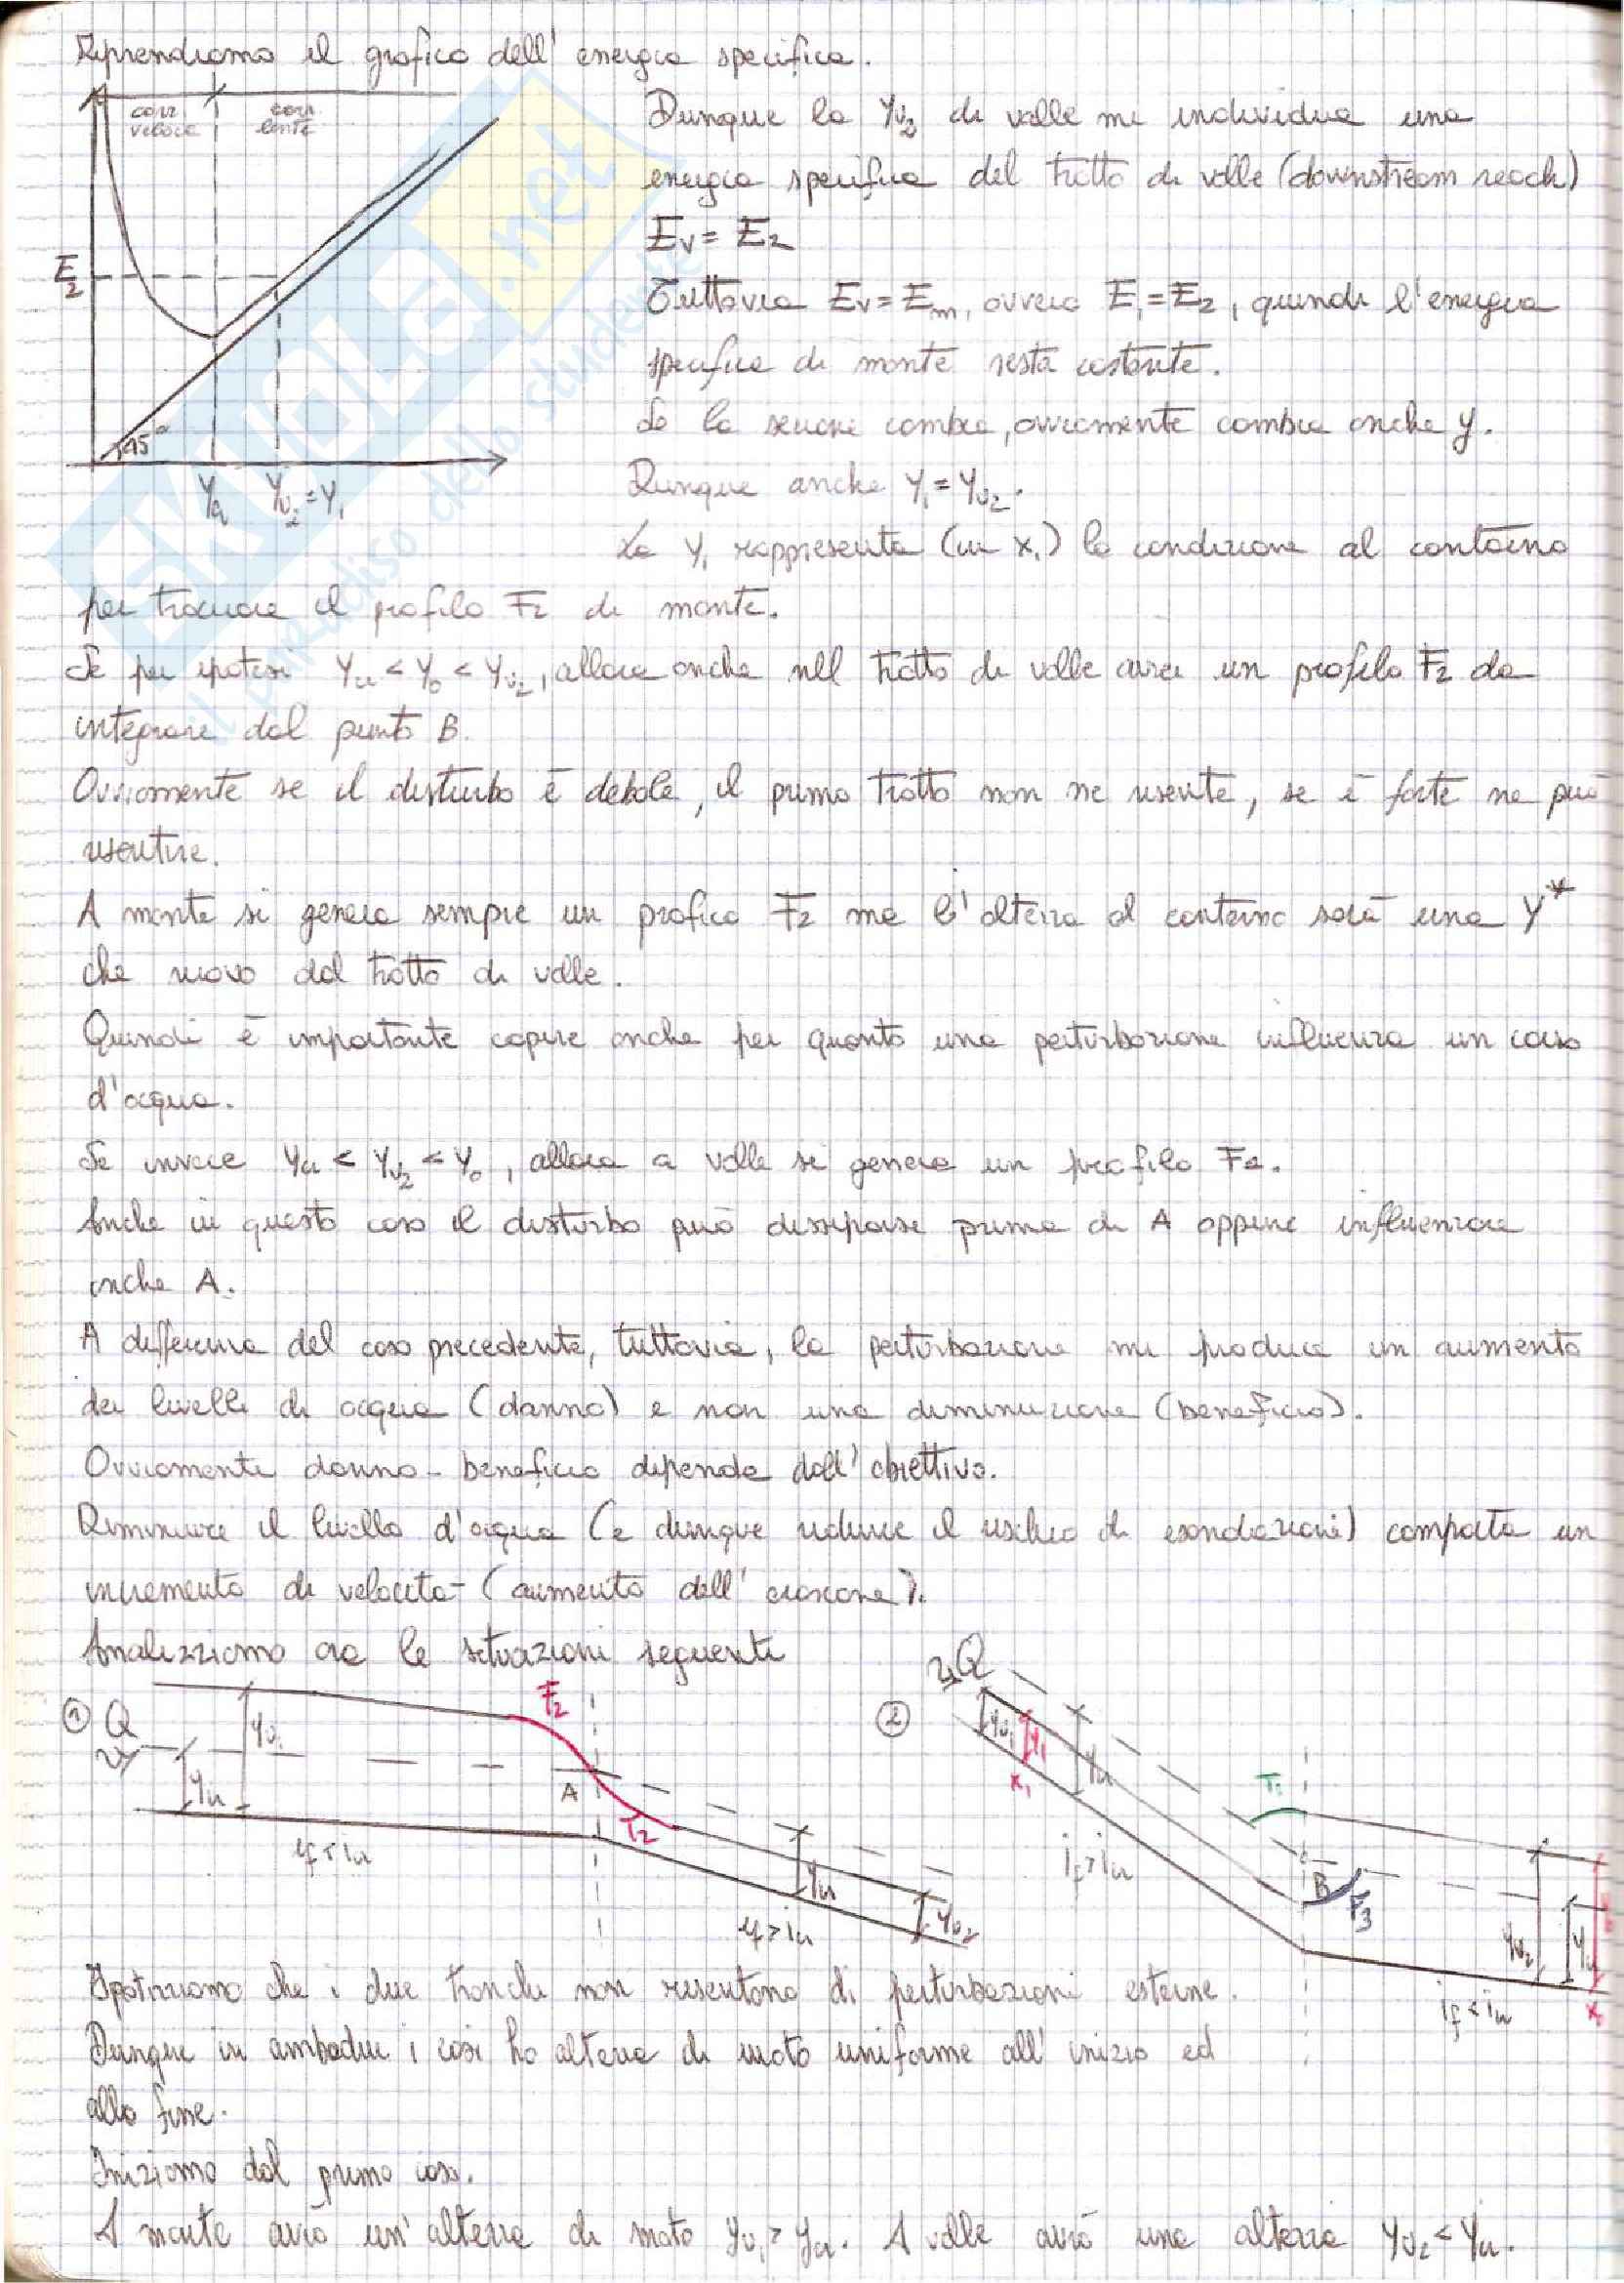 Riprendiamo il grafico dell'energia specifica.
corr. veloce
corr. lente
E2
45°
Yu
Yu2 = Y1
Dunque la Yu2 di valle mi individua una
energia specifica del tratto di valle (downstream reach)
Ev = E2
Tuttavia Ev = Em, ovvero E1 = E2, quindi l'energia
specifica di monte resta costante.
Se la sezione cambia, ovviamente cambia anche y.
Dunque anche Y1 = Yu2.
La Y1 rappresenta (in x1) la condizione al contorno
per trovare il profilo F2 di monte.
Se per ipotesi Yu < Y0 < Yu2, allora anche nell tratto di valle avrei un profilo F2 da
integrare dal punto B.
Ovviamente se il disturbo è debole, il primo tratto non ne risente, se è forte ne può
risentire.
A monte si genera sempre un profico F2 ma l'altezza al contorno sarà una Y*
che ricavo dal tratto di valle.
Quindi è importante capire anche per quanto una perturbazione influenza un corso
d'acqua.
Se invece Yu < Yu2 < Y0, allora a valle si genera un profilo F2.
Anche in questo caso il disturbo può dissiparsi prima di A oppure influenzare
anche A.
A differenza del caso precedente, tuttavia, la perturbazione mi produce un aumento
dei livelli di acqua (danno) e non una diminuzione (beneficio).
Ovviamente danno-beneficio dipende dall'obiettivo.
Diminuire il livello d'acqua (e dunque ridurre il rischio di esondazioni) comporta un
incremento di velocità (aumento dell'erosione).
Analizziamo ora le situazioni seguenti
① Q
Yu1
Yu
if < iu
F2
A
T2
Yu
if > iu
Yu2
② Q
Yu1
Y1
x1
Yu
if > iu
T1
B
F3
Yu2
Yu
if < iu
Ipotizziamo che i due tronchi non risentono di perturbazioni esterne.
Dunque in ambedue i casi ho altezze di moto uniforme all'inizio ed
alla fine.
Iniziamo dal primo caso.
A monte avrò un'altezza di moto Yu1 > Yu. A valle avrò una altezza Yu2 < Yu.